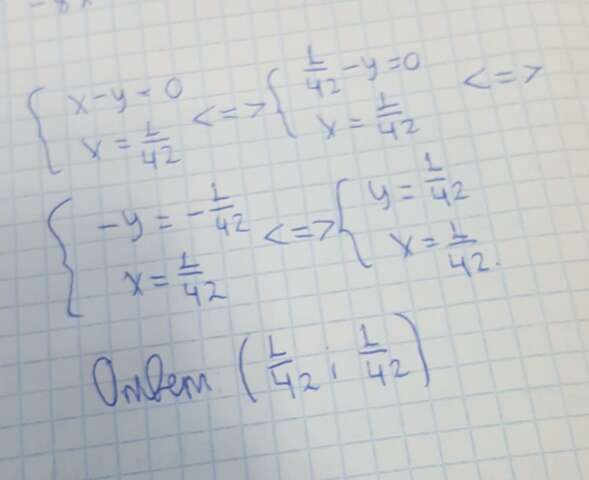 { x-y=0 <=> { 1/42 -y=0 <=>
x=1/42 x=1/42
{ -y=-1/42 <=> { y=1/42
x=1/42 x=1/42.
Ответ (1/42; 1/42)